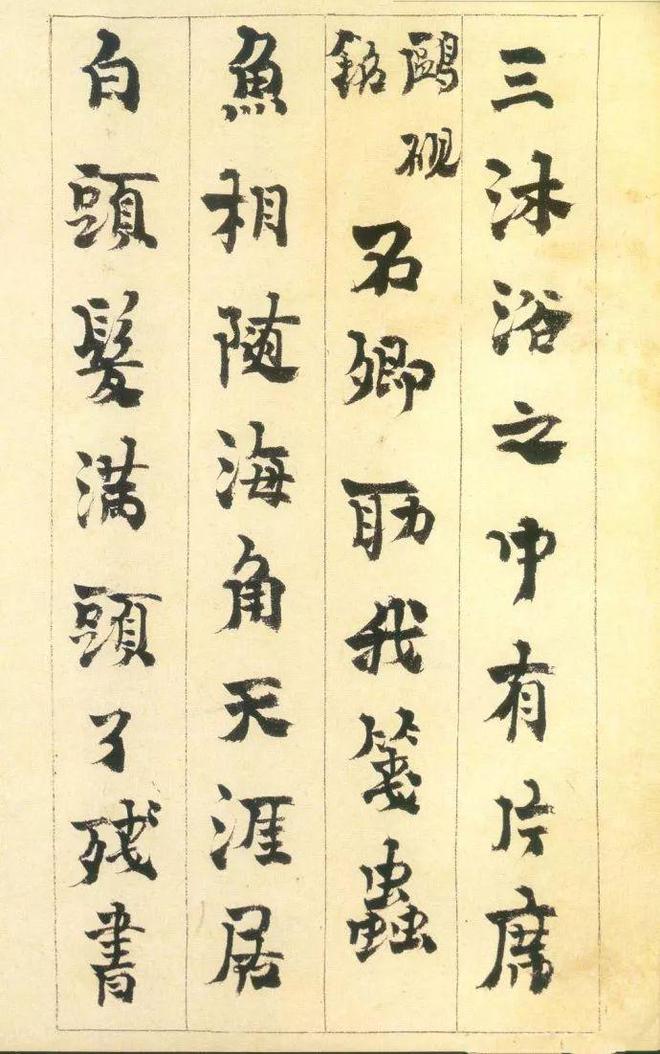 三沐浴之中有片席
鷗硯
銘
石卿助我箋蟲
魚相随海角天涯居
白頭髮滿頭了殘書